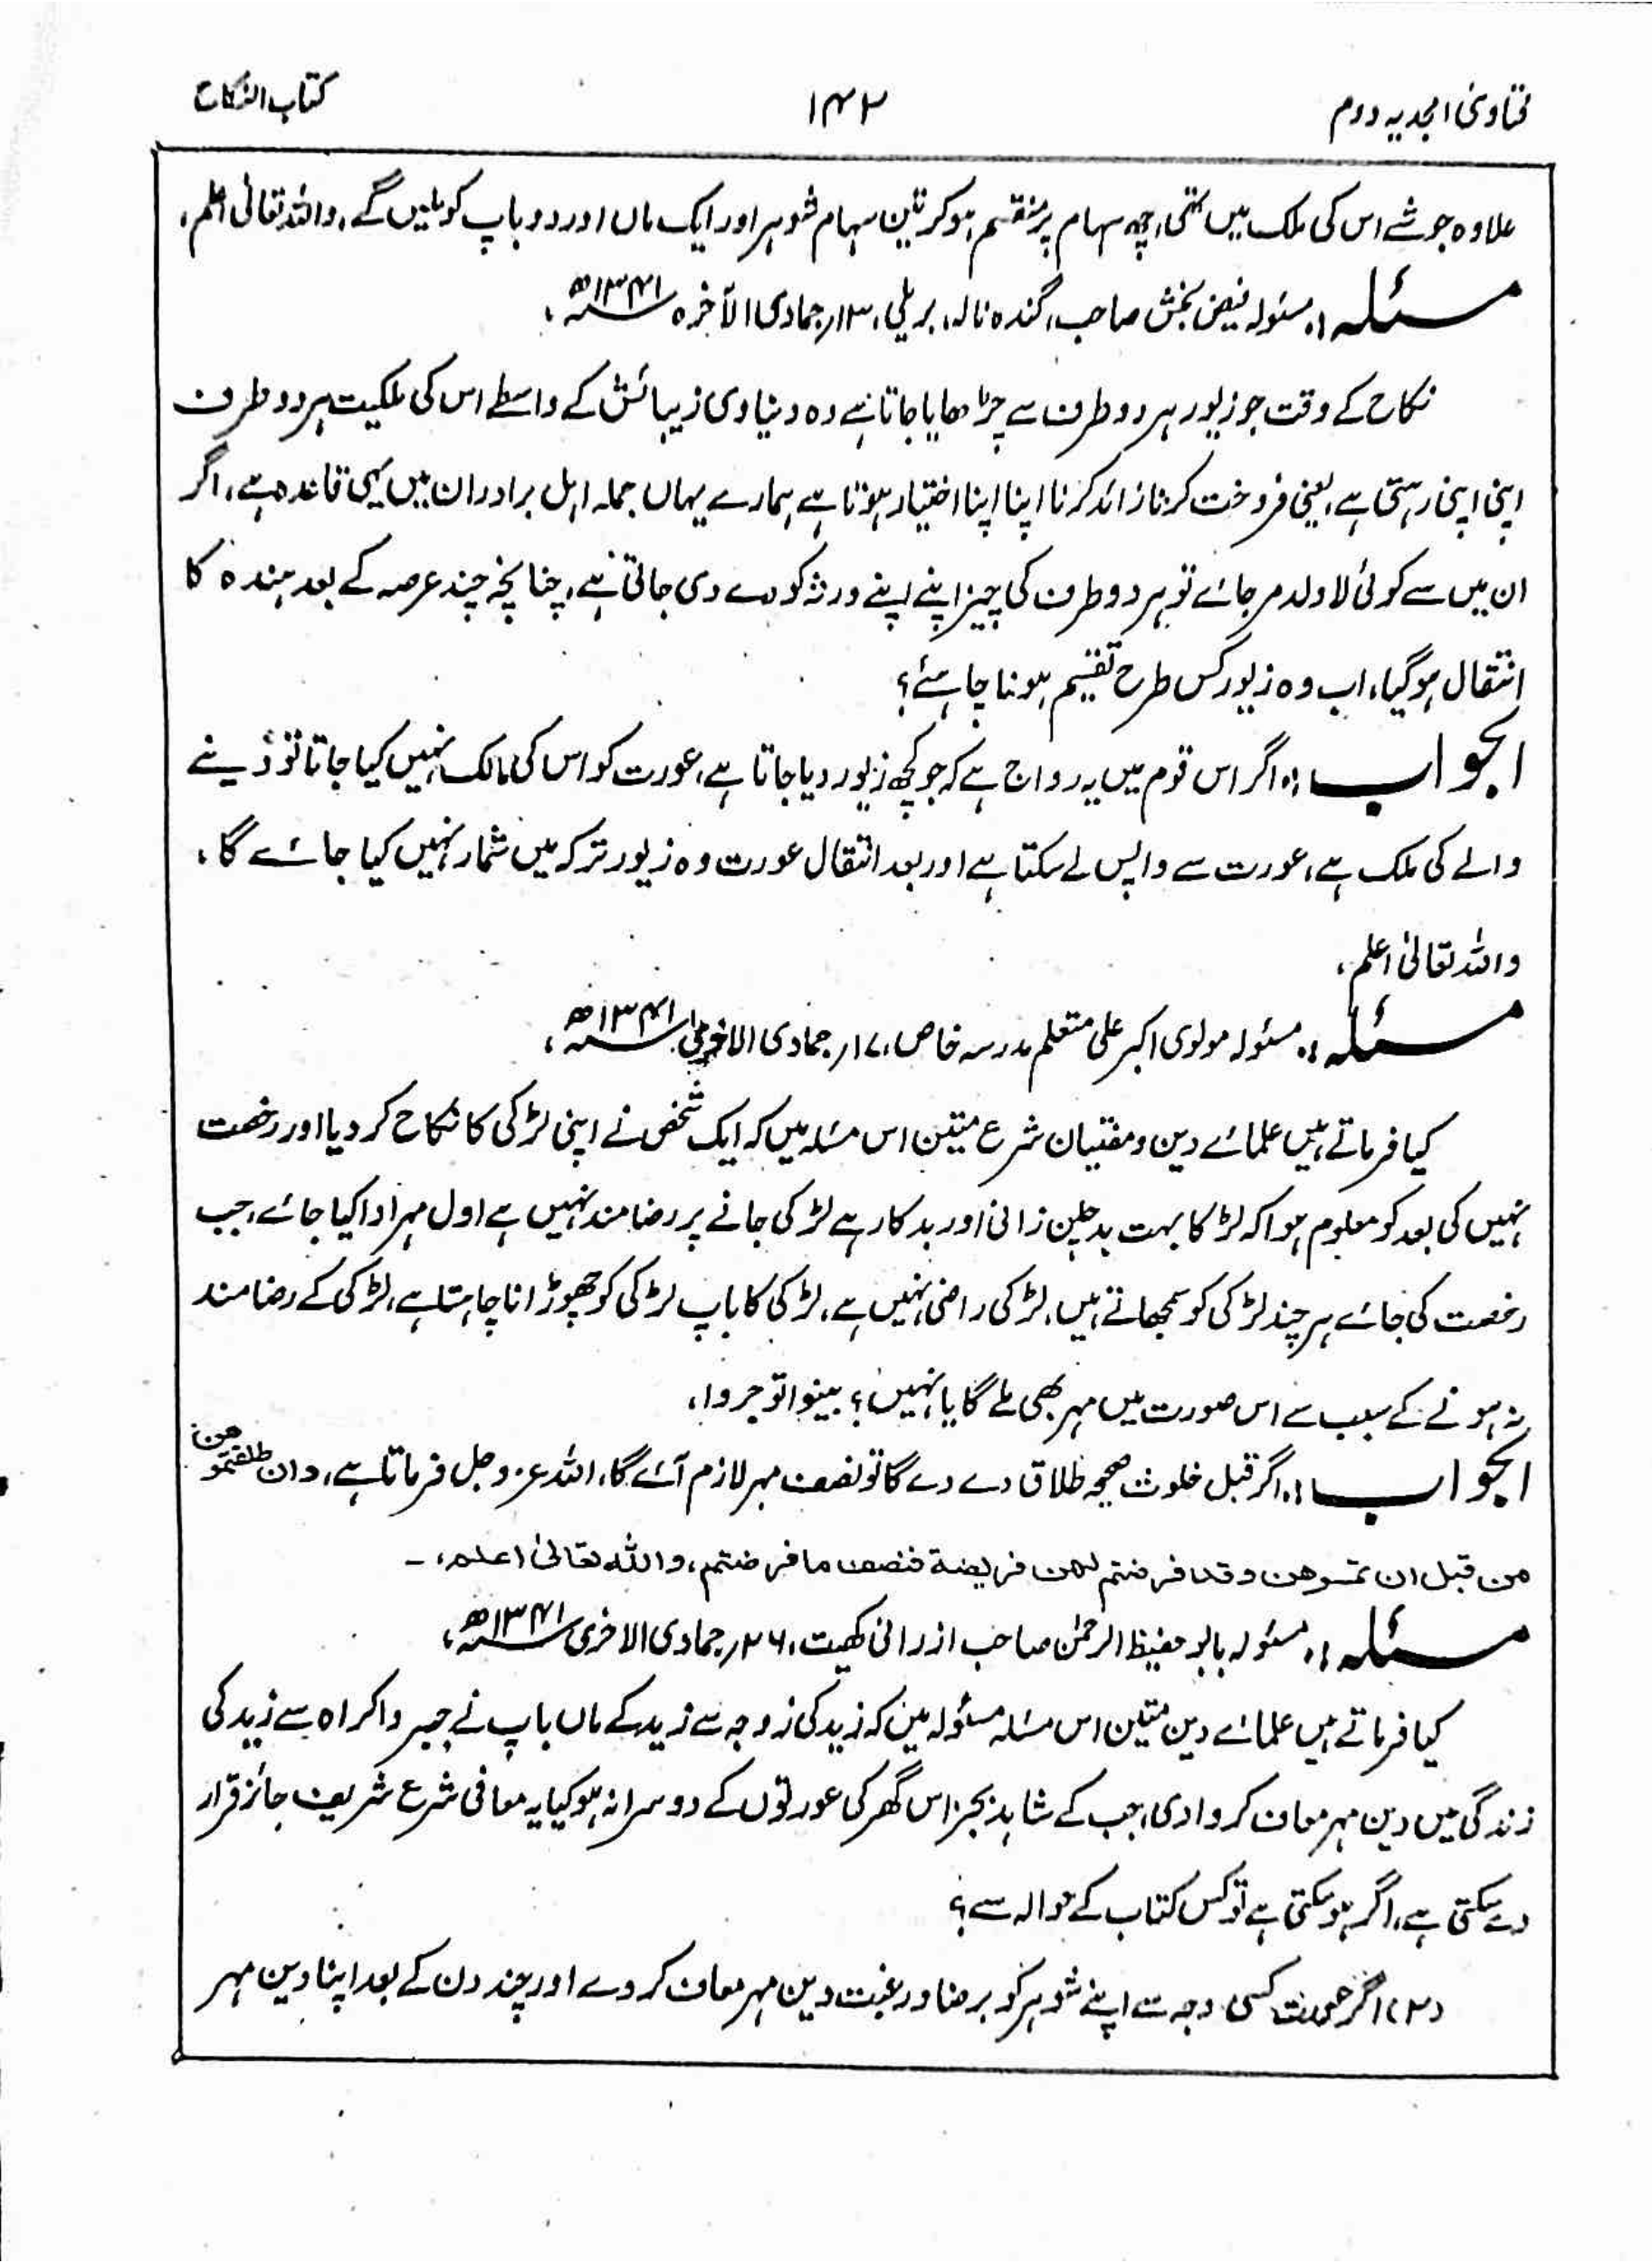 فتاویٰ امجدیہ دوم ۱۴۲ کتاب النکاح
علاوہ جو شے اس کی ملک میں تھی، چھ سہام پر منقسم ہو کر تین سہام شوہر اور ایک ماں اور دو باپ کو ملیں گے، واللہ تعالیٰ اعلم،
مسئلہ:۔ مسئولہ فیض بخش صاحب، گندہ نالہ، بریلی، ۱۳؍ جمادی الآخرہ ۱۳۴۱ھ،
نکاح کے وقت جو زیور ہر دو طرف سے چڑھایا جاتا ہے وہ دنیاوی زیبائش کے واسطے اس کی ملکیت ہر دو طرف
اپنی اپنی رہتی ہے، یعنی فروخت کرنا زائد کرنا اپنا اپنا اختیار ہوتا ہے ہمارے یہاں جملہ اہل برادران میں یہی قاعدہ ہے، اگر
ان میں سے کوئی لاولد مر جائے تو ہر دو طرف کی چیز اپنے اپنے ورثہ کو دے دی جاتی ہے، چنانچہ چند عرصہ کے بعد ہندہ کا
انتقال ہو گیا، اب وہ زیور کس طرح تقسیم ہونا چاہئے؟
الجواب:۔ اگر اس قوم میں یہ رواج ہے کہ جو کچھ زیور دیا جاتا ہے، عورت کو اس کی مالک نہیں کیا جاتا تو دینے
والے کی ملک ہے، عورت سے واپس لے سکتا ہے اور بعد انتقال عورت وہ زیور ترکہ میں شمار نہیں کیا جائے گا،
واللہ تعالیٰ اعلم،
مسئلہ:۔ مسئولہ مولوی اکبر علی متعلم مدرسہ خاص، ۱۷؍ جمادی الاخریٰ ۱۳۴۱ھ،
کیا فرماتے ہیں علمائے دین و مفتیان شرع متین اس مسئلہ میں کہ ایک شخص نے اپنی لڑکی کا نکاح کر دیا اور رخصت
نہیں کی بعد کو معلوم ہوا کہ لڑکا بہت بدچلن زانی اور بدکار ہے لڑکی جانے پر رضامند نہیں ہے اول مہر ادا کیا جائے، جب
رخصت کی جائے ہر چند لڑکی کو سمجھاتے ہیں، لڑکی راضی نہیں ہے، لڑکی کا باپ لڑکی کو چھوڑانا چاہتا ہے، لڑکی کے رضامند
نہ ہونے کے سبب سے اس صورت میں مہر بھی ملے گا یا نہیں؟ بینوا توجروا،
الجواب:۔ اگر قبل خلوت صحیحہ طلاق دے دے گا تو نصف مہر لازم آئے گا، اللہ عز وجل فرماتا ہے، وان طلقتموھن
من قبل ان تمسوھن وقد فرضتم لھن فریضۃ فنصف ما فرضتم، واللہ تعالیٰ اعلم، ۔
مسئلہ:۔ مسئولہ بابو حفیظ الرحمٰن صاحب از رانی کھیت، ۲۶؍ جمادی الاخریٰ ۱۳۴۱ھ،
کیا فرماتے ہیں علمائے دین متین اس مسئلہ مسئولہ میں کہ زید کی زوجہ سے زید کے ماں باپ نے جبر و اکراہ سے زید کی
زندگی میں دین مہر معاف کروادی، جب کے شاہد بجز اس گھر کی عورتوں کے دوسرا نہ ہو کیا یہ معافی شرع شریف جائز قرار
دے سکتی ہے، اگر ہو سکتی ہے تو کس کتاب کے حوالہ سے؟
(۲) اگر عورت کسی وجہ سے اپنے شوہر کو برضا و رغبت دین مہر معاف کر دے اور چند دن کے بعد اپنا دین مہر